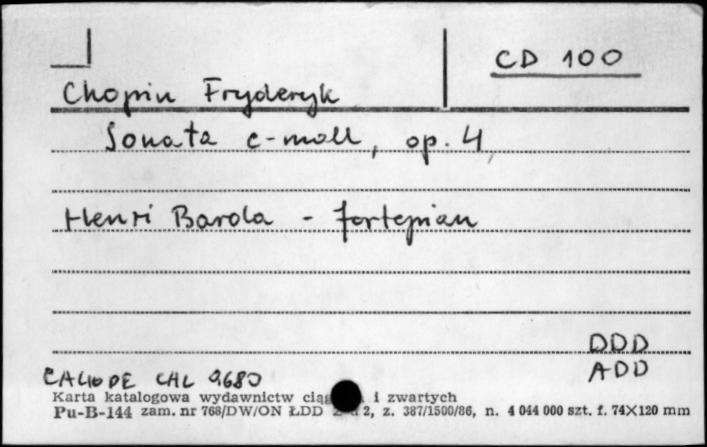 CD 100
Chopin Fryderyk
Sonata c-moll, op. 4
Henri Barda - fortepian
DDD
ADD
CALIOPE CAL 9680
Karta katalogowa wydawnictw i zwartych
Pu-B-144 zam. nr 768/DW/ON ŁDD 2, z. 387/1500/86, n. 4 044 000 szt. f. 74X120 mm